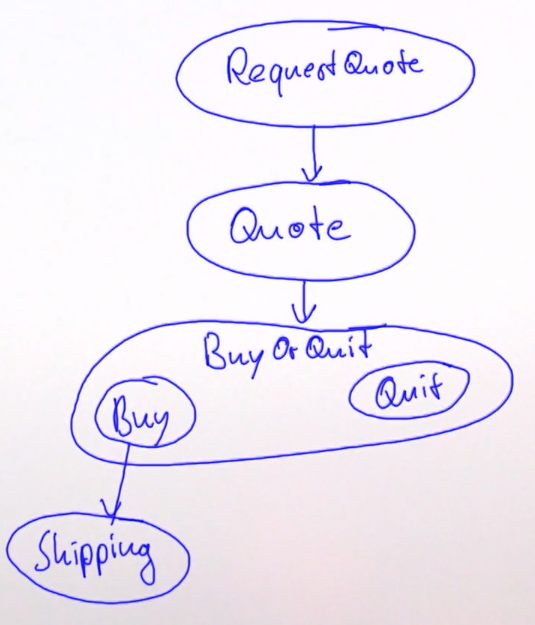 Request Quote
Quote
Buy Or Quit
Buy
Quit
Shipping